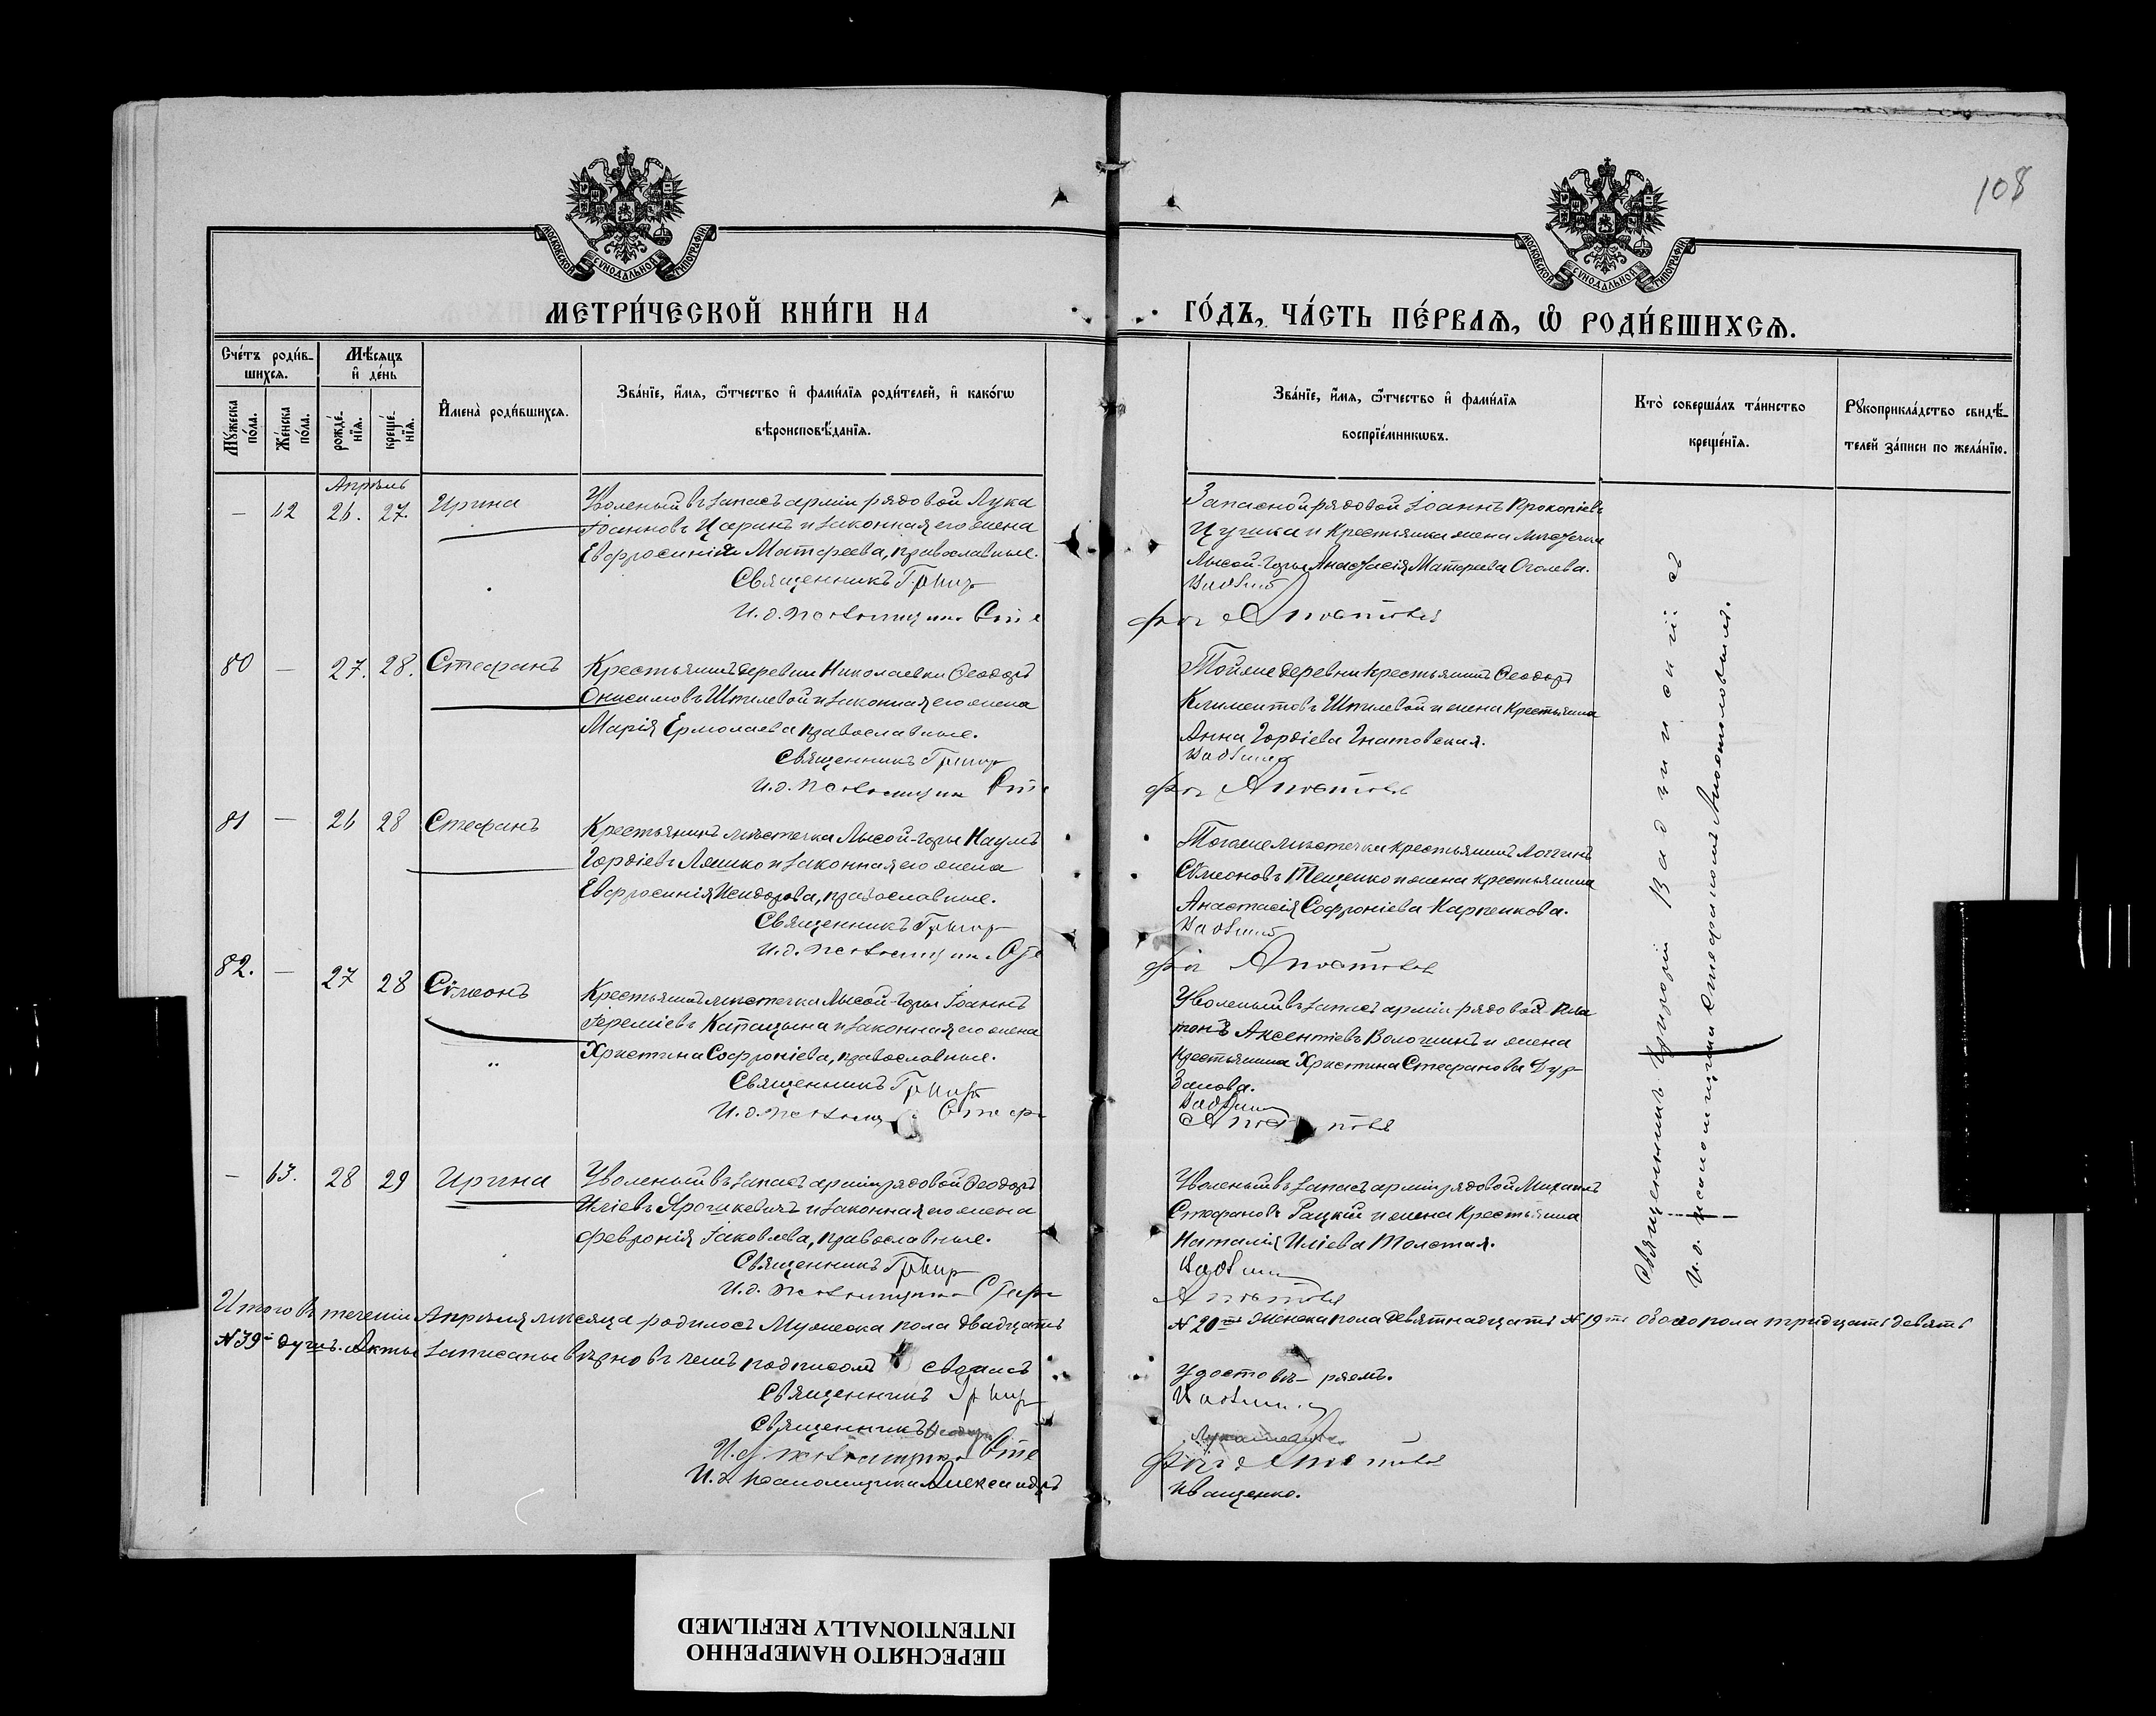 108
МОСКОВСКОЙ СѴНОДАЛЬНОЙ ТИПОГРАФІИ
МОСКОВСКОЙ СѴНОДАЛЬНОЙ ТИПОГРАФІИ
МЕТРИ́ЧЕСКОЙ КНИ́ГИ НА
ГО́ДЪ, ЧА́СТЬ ПЕ́РВАѦ, Ѡ҆ РОДИ́ВШИХСѦ.
Сче́тъ роди́в-
шихсѧ.
Мѣ́сѧцъ
и҆ де́нь
Мꙋ́жеска по́ла.
Же́нска по́ла.
рожде́-
нїѧ.
креще́-
нїѧ.
И҆мена̀ роди́вшихсѧ.
Зва́нїе, и҆́мѧ, ѻ҆́тчество и҆ фами́лїѧ роди́телей, и҆ како́гѡ
вѣроисповѣ́данїѧ.
Зва́нїе, и҆́мѧ, ѻ҆́тчество и҆ фами́лїѧ
воспрїе́мникѡвъ.
Кто̀ соверша́лъ та́инство
креще́нїѧ.
Рꙋкоприкла́дство свидѣ́-
телей за́писи по жела́нїю.
Апрѣль
— 62 26. 27. Ирина
Уволеный въ запасъ арміи рядовой Лука
Іоанновъ Царинъ и законная его жена
Евфросинія Матфеева, православные.
Священникъ Григор
И.д. псаломщика Сте
Запасной рядовой Іоаннъ Прокопіевъ
и Крестьянка жена мѣстечка
Лысой-Горы Анастасія Матфеева Оголева.
Вадзинс
фан Апостолов
80 — 27. 28. Стефанъ
Крестьянинъ деревни Николаевки Ѳеодоръ
Онисимовъ Шпилевой и законная его жена
Марія Ермолаева православные.
Священникъ Григор
И.д. псаломщика Сте
Тойже деревни крестьянинъ Ѳеодоръ
Климентовъ Шпилевой и жена крестьянина
Анна Гордіева Гнатовская.
фан Апостолов
81 — 26 28 Стефанъ
Крестьянинъ мѣстечка Лысой-Горы Наумъ
Гордіевъ Ляшко и законная его жена
Евфросинія Исидорова, православные.
Священникъ Григор
И.д. псаломщика Сте
Тогоже мѣстечка крестьянинъ Логгинъ
Сѵмеоновъ Тещенко и жена крестьянина
Анастасія Софроніева Карпенкова.
фан Апостолов
82. — 27 28 Сѵмеонъ
Крестьянинъ мѣстечка Лысой-Горы Іоаннъ
Іереміевъ Капацына и законная его жена
Христина Софроніева, православные.
Священникъ Григор
И.д. псаломщ Стеф
Уволеный въ запасъ арміи рядовой Пла
тонъ Аксентіевъ Волошинъ и жена
крестьянина Христина Стефанова Дур-
Апос толов
— 63. 28 29 Ирина
Уволеный въ запасъ арміи рядовой Ѳеодоръ
Иліевъ Ярошкевичъ и законная его жена
Февронія Іаковлева, православные.
Священникъ Григор
И.д. псаломщика Стеф
Уволеный въ запасъ арміи рядовой Михаилъ
Стефановъ Рацкій и жена Крестьянина
Наталія Иліева Толстая.
Апостолов
Священникъ Григорій Вадзинскій съ
и.о. псаломщика Стефаномъ Апостоловымъ.
Итого въ теченіи Апрѣля мѣсяца родилось Мужеска пола двадцать
№ 20ть Женска пола девятнадцать № 19ть обоего пола тридцать девять
№ 39ть душъ. Акты записаны вѣрно въ чемъ подписомъ своимъ
удостовѣ- ряемъ.
Священникъ Григор
Священникъ
И.д. псаломщика Сте
фан Апостолов
И.д. псаломщика Александръ
Иващенко.
ПЕРЕСНЯТО НАМЕРЕННО
INTENTIONALLY REFILMED